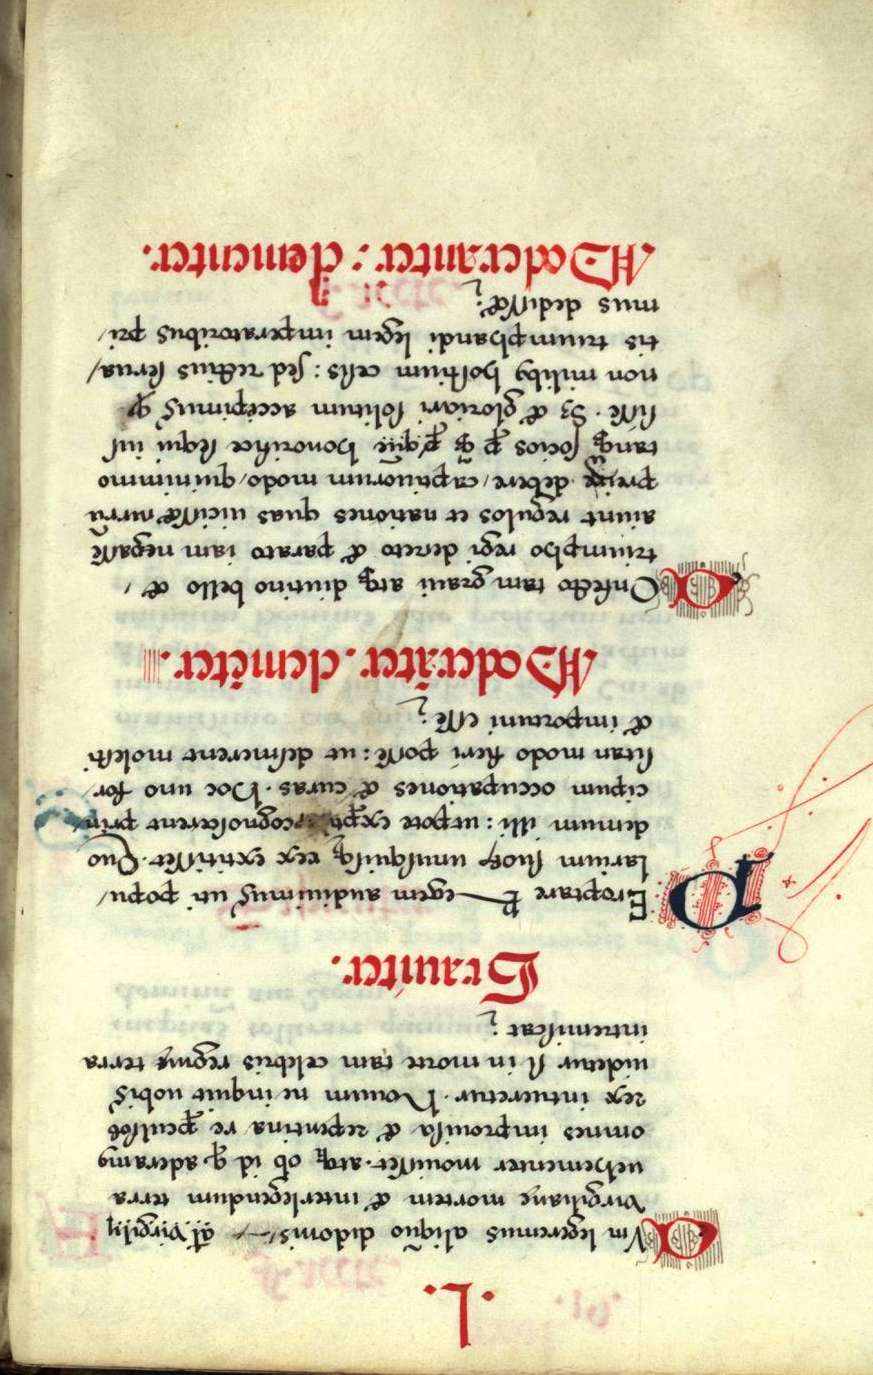 .L.
CVm legeremus aliqñdo didonis
Virgiliane mortem & interlegendum terra
uehementer mouisset. atq; ob id q aderamꝯ
omnes improuisa & repentina re ꝑculsos
rex intueretur. Nouum ne inquit nobis
uidetur si in morte tam celebris regine terra
intremiscat?
Grauiter.
PEroptare Regem audiuimus uti popu/
larium suoꝝ unusquisq; rex extitisset. Quo
demum illi: utpote recognoscerent prin
cipum occupationes & curas. Hoc uno for/
sitan modo fieri posse: ut desinerent molesti
& importuni esse?
Moderāter. clemēter.
COnfecto tam graui atq; diutino bello & /
triumpho regi decreto & parato iam negasse
aiunt regulos et nationes quas uicisset curru
preire debere / captiuorum modo / quinimmo
tanq; socios honorifice sequi ius
sisse. Sꝫ & gloriari solitum accepimus
non milibꝯ hostium cesis: sed rectius serua/
tis triumphandi legem imperatoribus pri/
mus dedisset?
Moderanter: clementer.